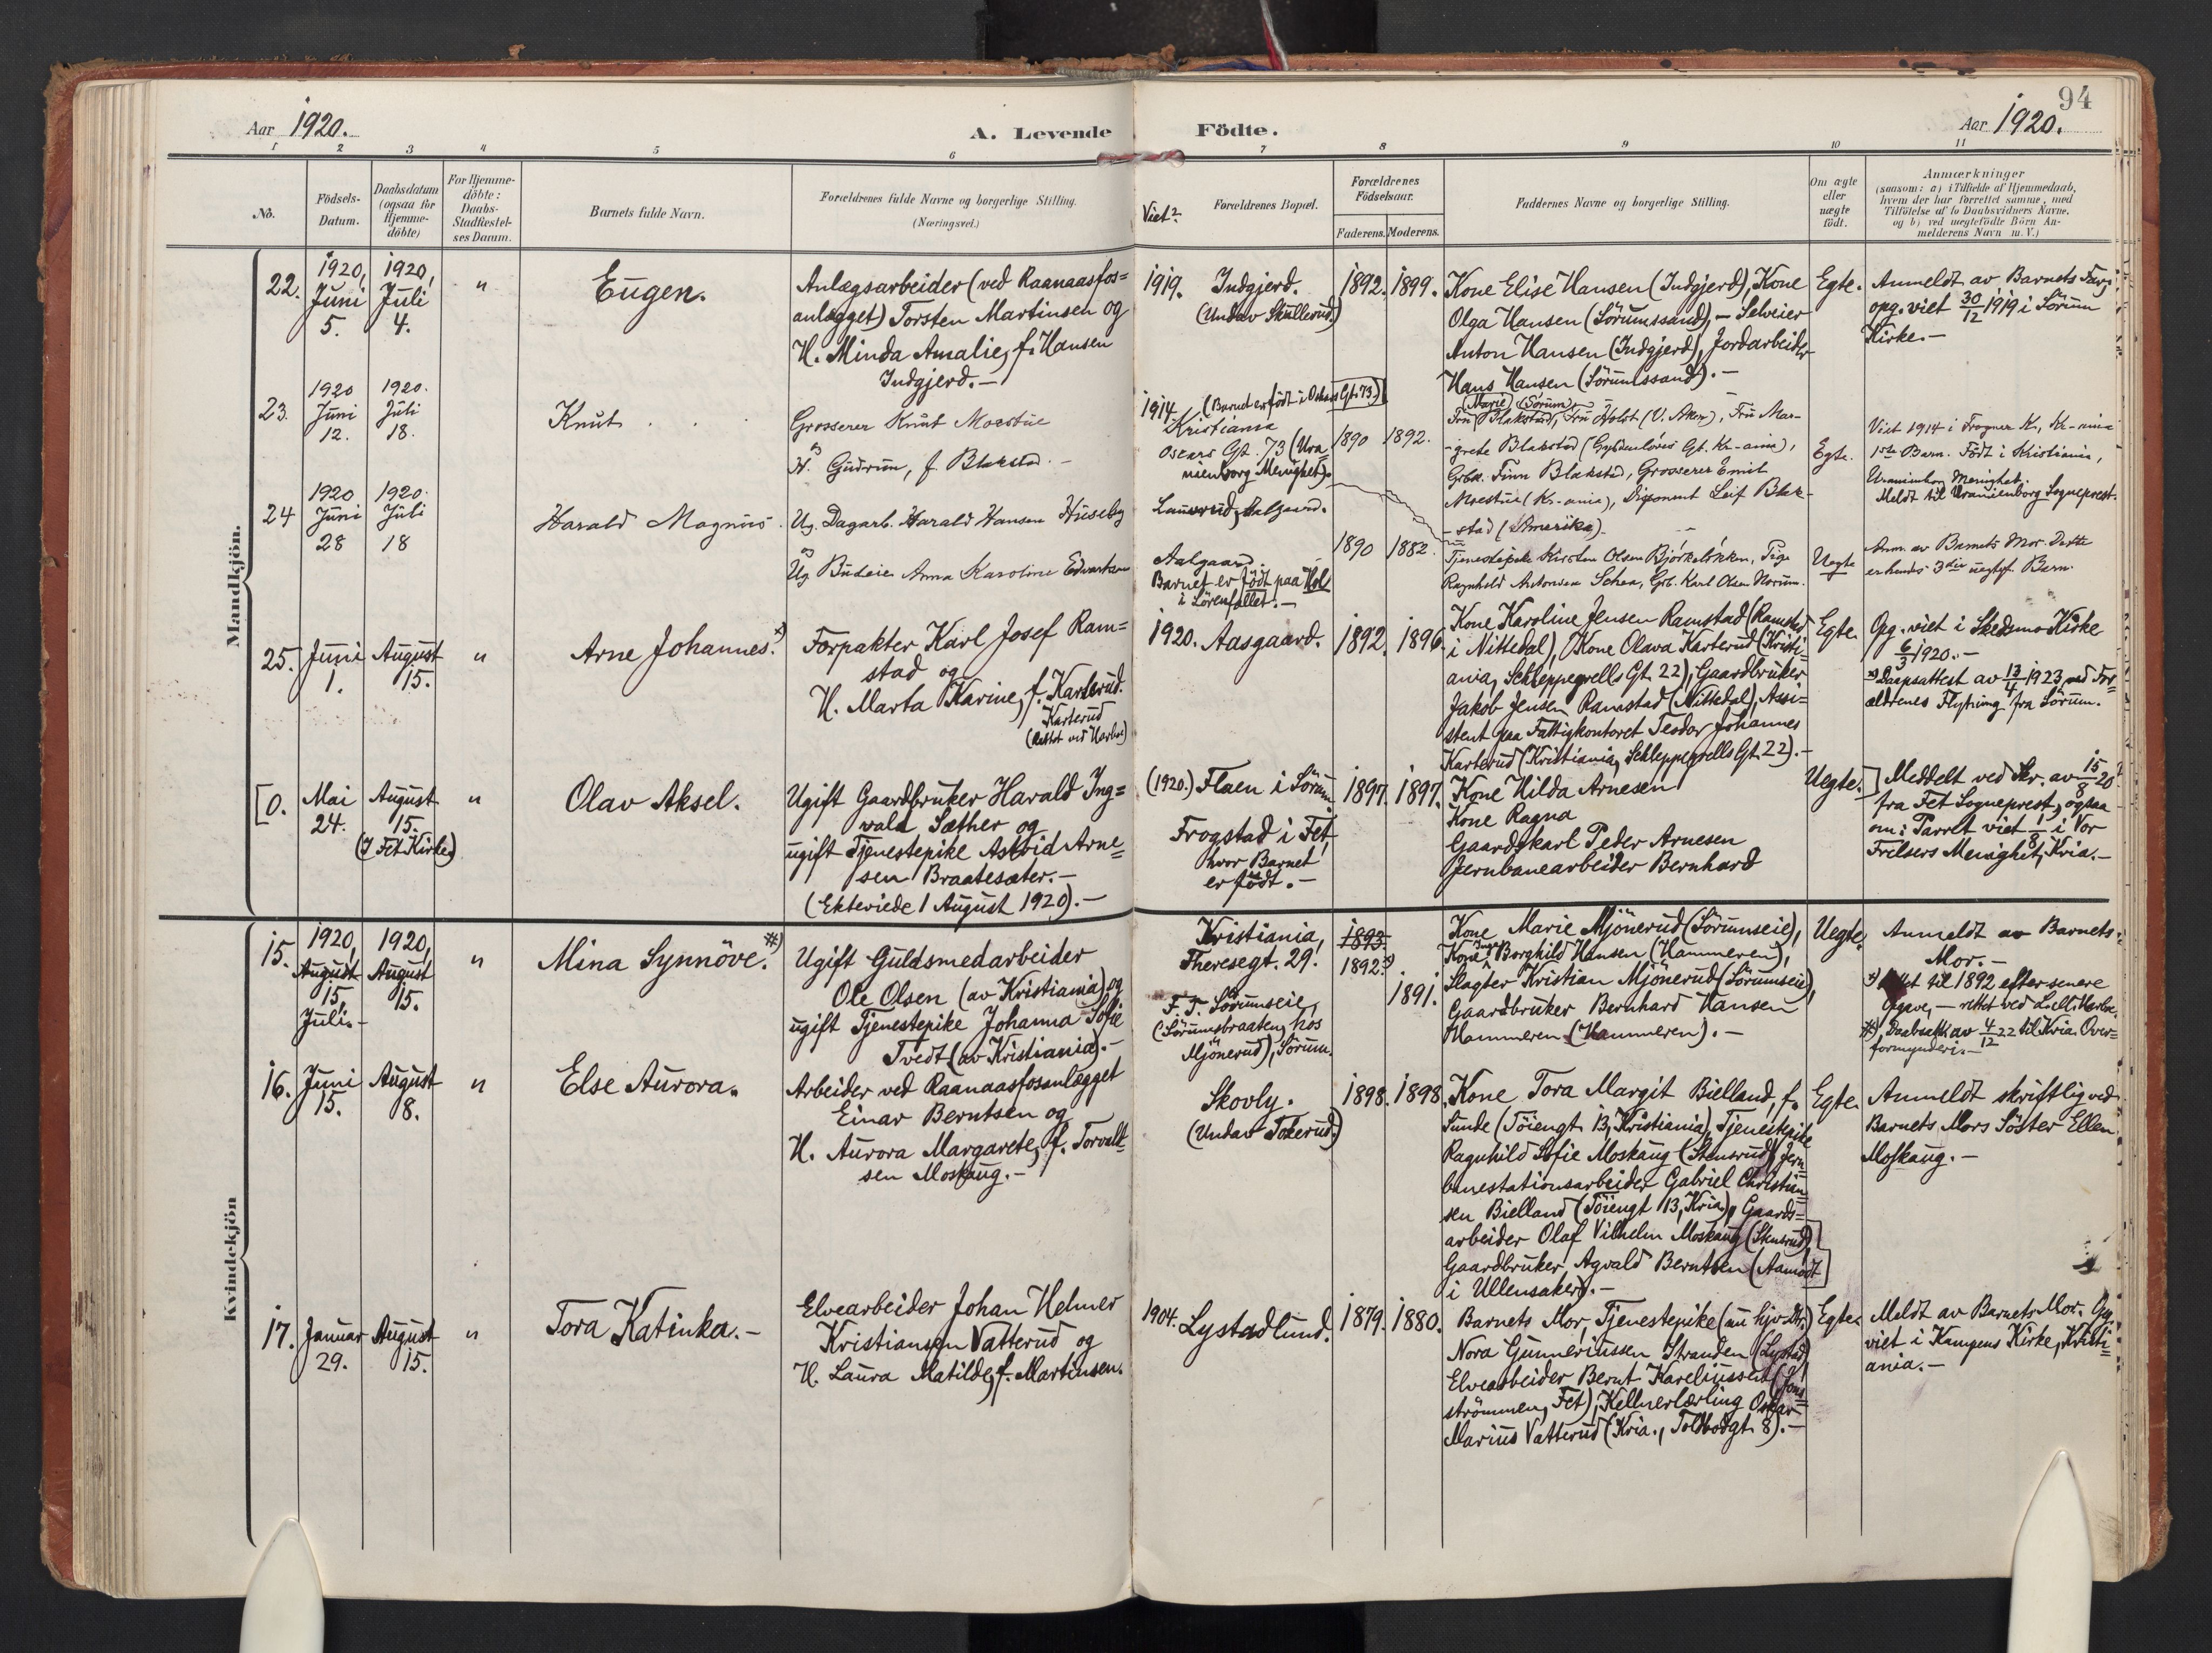 94
Aar 1920.
A. Levende Födte.
Aar 1920.
1 2 3 4 5 6 7 8 9 10 11
No.
Födsels-
Datum.
Daabsdatum
(ogsaa for
Hjemme-
döbte)
For Hjemme-
döbte:
Daabs-
Stadfæstel-
ses Datum.
Barnets fulde Navn.
Forældrenes fulde Navne og borgerlige Stilling.
(Næringsvei.)
Viet?
Forældrenes Bopæl.
Forældrenes
Födselsaar.
Faderens. Moderens.
Faddernes Navne og borgerlige Stilling.
Om ægte
eller
uægte
födt.
Anmærkninger
(saasom: a) i Tilfælde af Hjemmedaab,
hvem der har forrettet samme, med
Tilföielse af to Daabsvidners Navne,
og b) ved uægtefödte Börn An-
melderens Navn m. V.)
Mandkjön.
22.
1920,
Juni
5.
1920,
Juli
4.
"
Eugen.
Anlægsarbeider (ved Raanaasfos=
anlægget) Torsten Martinsen og
H. Minda Amalie, f. Hansen
Indgjerd.-
1919.
Indgjerd.
(Undav Skullerud.)
1892. 1899.
Kone Elise Hansen (Indgjerd), Kone
Olga Hansen (Sörumssand), - Selveier
Anton Hansen (Indgjerd), Jordarbeider
Hans Hansen (Sörumssand).-
Egte.
Anmeldt av Barnets Far;
opg. viet 30/12 1919 i Sörum
Kirke.-
23.
1920
Juni
12.
1920.
Juli
18.
Knut
Grosserer Knut Moestue
og
H. Gudrun, f. Blakstad.-
1914.
(Barnet er födt i Oskars Gt. 73)
Kristiania
Oscars Gt. 73 (Ura-
nienborg Menighet).
1890 1892.
(Marie) (Sörum)
Fru Blakstad, Fru Holst (V. Aker), Fru Mar-
-grete Blakstad (Gyldenlöves Gt. Kr-ania),
Grbr. Finn Blakstad, Grosserer Emil
Moestue (Kr-ania), Disponent Leif Blak-
-stad (Amerika).
Egte.
Viet 1914 i Frogner K., Kr-ania
1ste Barn. Födt i Kristiania,
Uranienborg Menighet.
Meldt til Uranienborg Sogneprest.
24
1920
Juni
28
1920.
Juli
18
Harald Magnus.
Ug. Dagarb. Harald Hansen Huseby
og
Ug. Budeie Anna Karoline Edvartsen
Aalgaard.
Barnet er födt paa Hol
i Sörenfallet.-
1890 1882.
Tjenestepike Kirsten Olsen Björkelökken, Pige
Ragnhild Antonsen Schea, Grb. Karl Olsen Norum.
Uegte
Anm. av Barnets Mor. Dette
er hendes 3die uegtef. Barn.
25.
Juni
1.
August
15.
"
Arne Johannes.*)
Forpakter Karl Josef Ram=
stad og
H. Marta Karine, f. Karterud.
Karterud
1920. Aasgaard.
1892. 1896.
Kone Karoline Jensen Ramstad (Ramstad
i Nittedal), Kone Olava Karterud (Kristi-
ania, Schleppegrells Gt. 22), Gaardbruker
Jakob Jensen Ramstad (Nittedal), Assi=
stent paa Fattigkontoret Teodor Johannes
Karterud (Kristiania, Schleppegrells Gt. 22).-
Egte.
Opg. viet i Skedsmo Kirke
6/3 1920.-
*) Daapsattest av 13/4 1923 ved For=
ældrenes Flytning fra Sörum.
[0.
Mai
24.
August
15.
(I Fet Kirke)
"
Olav Aksel.
Ugift Gaardbruker Harald Ing=
vald Sæther og
ugift Tjenestepike Astrid Arne=
sen Braatesæter.-
(Ektevi­ede 1 August 1920).-
(1920.) Flaen i Sörum.
Frogstad i Fet,
hvor Barnet
er födt.-
1897. 1897.
Kone Hilda Arnesen
Kone Ragna
Gaardskarl Peder Arnesen
Jernbanearbeider Bernhard
Uegte.]
Meddelt ved Skr. av 15/8 20
fra Fet Sogneprest, ogsaa
om: Parret viet 1/8 i Vor
Frelsers Menighet, Kria.-
Kvindekjön
15.
1920,
August
15,
Juli.-
1920,
August
15.
"
Mina Synnöve.#)
Ugift Guldsmedarbeider
Ole Olsen (av Kristiania) og
ugift Tjenestepike Johanna Sofie
Tvedt (av Kristiania).-
Kristiania,
Theresegt. 29.
F. T. Sörumseie,
(Sörumsbraaten, hos
Mjönerud), Sörum.
1893.
1892*)
1891.
Kone Marie Mjönerud (Sörumseie),
Kone Inga Borghild Hansen (Hammeren),
Slagter Kristian Mjönerud (Sörumseie),
Gaardbruker Bernhard Hansen
Hammeren (Hammeren).-
Uegte.
Anmeldt av Barnets
Mor.-
*) Rettet til 1892 efter senere
Opgave, - rettet ved
#) Daabsatt. av 4/12 22 til Kria. Over=
formynderi.-
16.
Juni
15.
August
8.
"
Else Aurora.
Arbeider ved Raanaasfosanlægget
Einar Berntsen og
H. Aurora Margarete, f. Torvald=
sen Moskaug.-
Skovly.
(Undav Tokerud.)
1898. 1898.
Kone Tora Margit Bielland, f.
Sunde (Töiengt 13, Kristiania), Tjenestepike
Ragnhild Sofie Moskaug (Stensrud), Jern=
banestationsarbeider Gabriel Christian=
sen Bielland (Töiengt 13, Kria.), Gaards=
arbeider Olaf Vilhelm Moskaug (Stensrud),
Gaardbruker Agvald Berntsen (Aamodt
i Ullensaker).-
Egte.
Anmeldt skriftlig ved
Barnets Mors Söster Ellen
Moskaug.-
17.
Januar
29.
August
15.
"
Tora Katinka.-
Elvearbeider Johan Helmer
Kristiansen Vatterud og
H. Laura Matilde, f. Martinsen.
1904. Lystadlund.
1879. 1880.
Barnets Mor, Tjenestepike
Nora Gunneriussen Stranden (Lystad),
Elvearbeider Bernt Kareliussen
strömmen, Fet), Kellnerlærling Oskar
Marius Vatterud (Kria., Toldbodgt. 8).-
Egte.
Meldt av Barnets Mor. Og.
viet i Kampens Kirke, Kristi=
ania.-